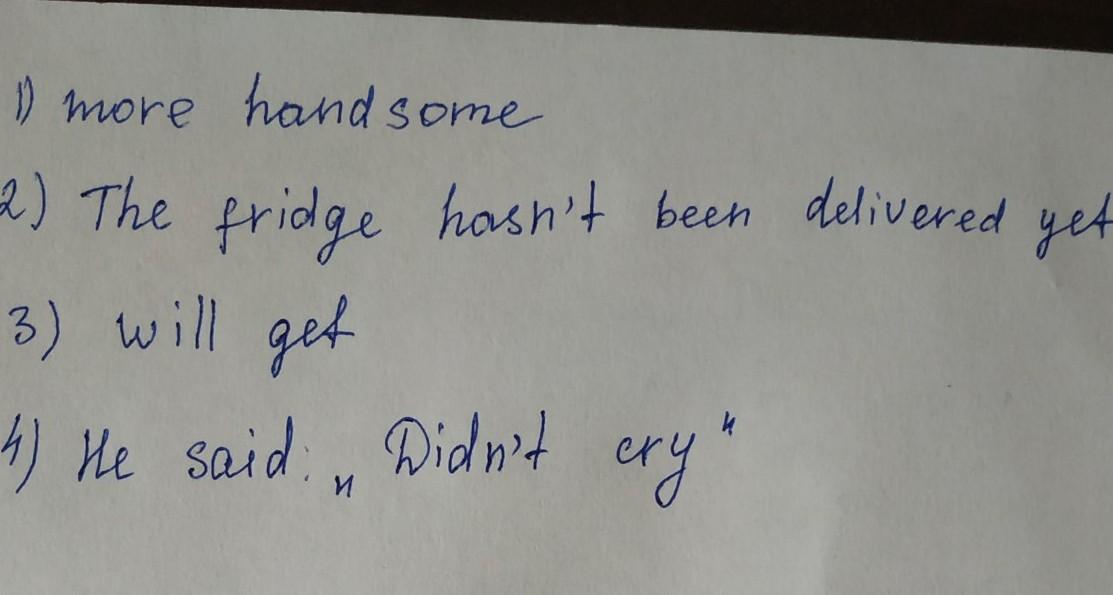 1) more handsome
2) The fridge hasn't been delivered yet
3) will get
4) He said: „Didn't cry"